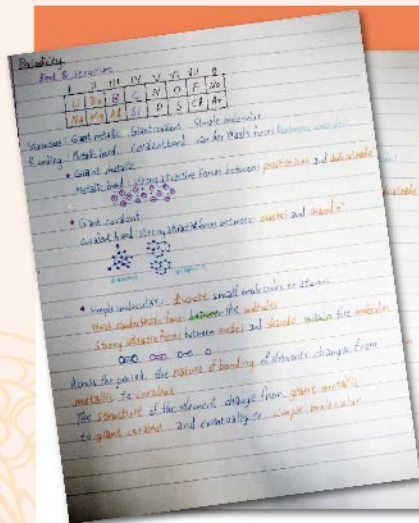 Periodicity
Bond & Structure
I II III IV V VI VII 0
Li Be B C N O F Ne
Na Mg Al Si P S Cl Ar
Structure: Giant metallic, Giant covalent, Simple molecular
Bonding: Metallic bond, Covalent bond, van der Waals forces
• Giant metallic
Metallic bond: strong attractive forces between positive ions and delocalised
• Giant covalent
Covalent bond: strong attractive forces between nuclei and shared e⁻
• Simple molecular: discrete small molecules or atoms
Weak van der Waals forces between the molecules
Strong attractive forces between nuclei and shared e⁻ within the molecules
Across the period, the nature of bonding of elements changes from
metallic to covalent.
The structure of the element change from giant metallic
to giant covalent and eventually to simple molecular